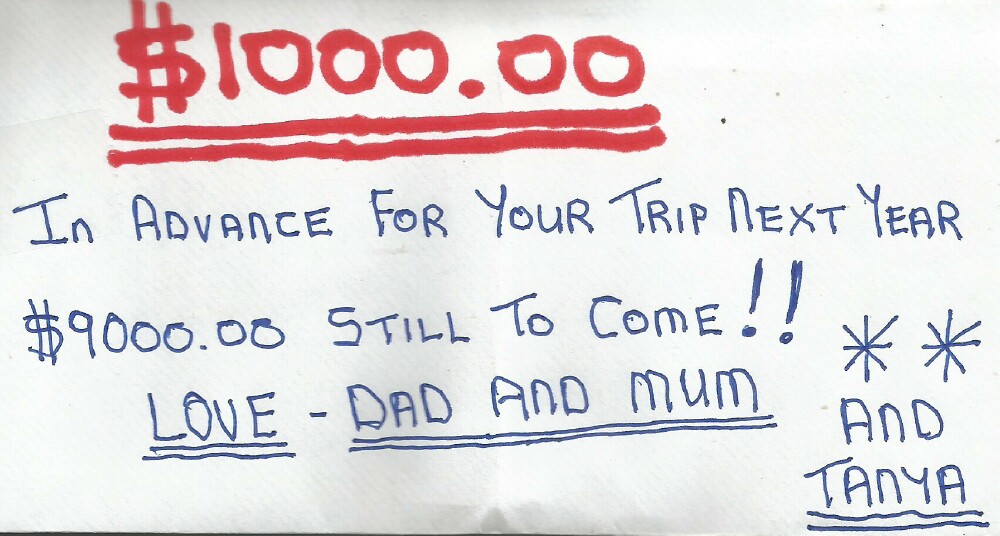 $1000.00
In ADVANCE FOR YOUR TRIP NEXT YEAR
$9000.00 STILL TO COME!!
LOVE - DAD AND MUM
* *
AND
TANYA